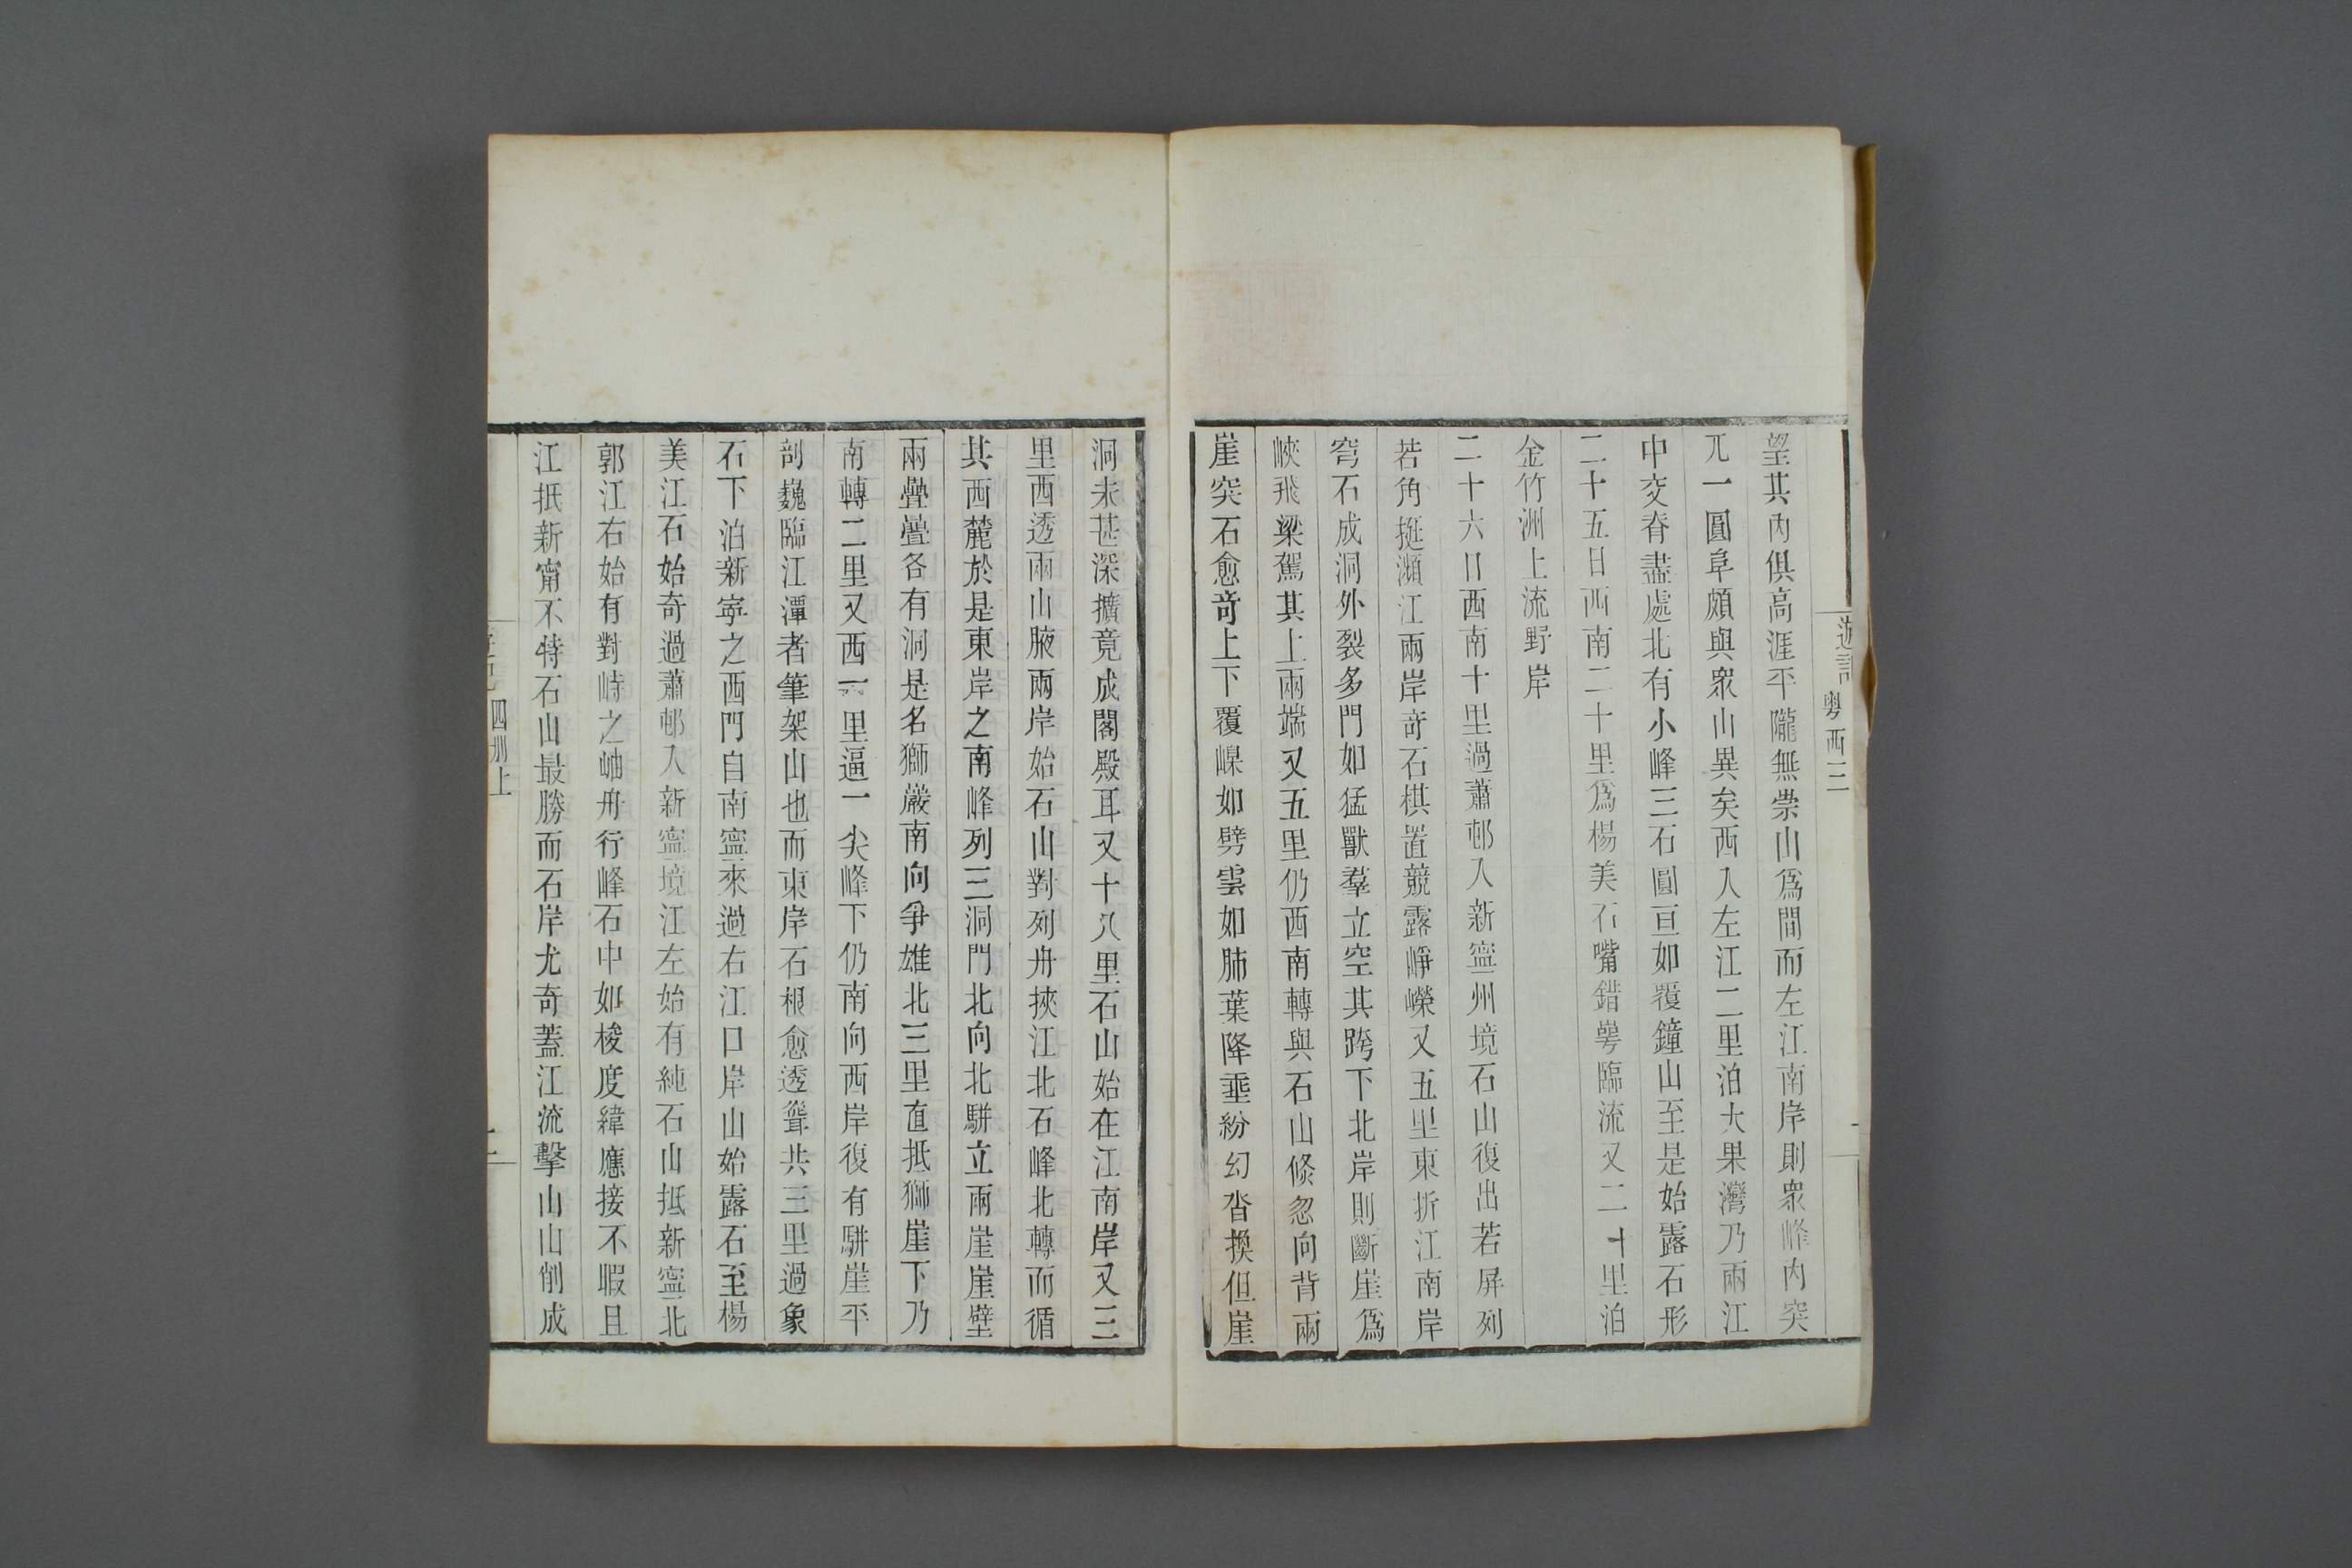 遊記 粵西三
望其內俱高涯平隴無崇山爲間而左江南岸則衆峰內突
兀一圓阜頗與衆山異矣西入左江二里泊大果灣乃兩江
中交脊盡處北有小峰三石圓亘如覆鐘山至是始露石形
二十五日西南二十里爲楊美石嘴錯崿臨流又二十里泊
金竹洲上流野岸
二十六日西南十里過蕭邨入新寧州境石山復出若屏列
若角挺瀕江兩岸竒石棋置競露崢嶸又五里東折江南岸
穹石成洞外裂多門如猛獸羣立空其跨下北岸則斷崖爲
峽飛梁駕其上兩端又五里仍西南轉與石山倏忽向背兩
崖突石愈竒上下覆嵲如劈雲如肺葉降垂紛幻沓換但崖
洞未甚深擴竟成閣殿耳又十八里石山始在江南岸又三
里西透兩山腋兩岸始石山對列舟挾江北石峰北轉而循
其西麓於是東岸之南峰列三洞門北向北駢立兩崖崖壁
兩疊疊各有洞是名獅巖南向爭雄北三里直抵獅崖下乃
南轉二里又西一里逼一尖峰下仍南向西岸復有駢崖平
剖巍臨江潭者筆架山也而東岸石根愈透聳共三里過象
石下泊新寧之西門自南寧來過右江口岸山始露石至楊
美江石始奇過蕭邨入新寧境江左始有純石山抵新寧北
郭江右始有對峙之岫舟行峰石中如梭度緯應接不暇且
江抵新甯不特石山最勝而石岸尤奇蓋江流擊山山削成
四册上